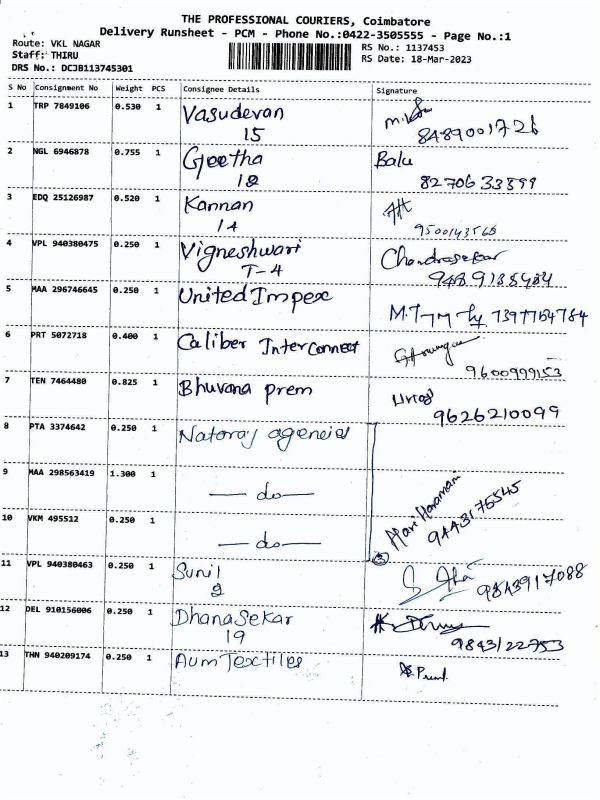 THE PROFESSIONAL COURIERS, Coimbatore
Delivery Runsheet - PCM - Phone No.:0422-3505555 - Page No.:1
Route: VKL NAGAR
Staff: THIRU
DRS No.: DCJB113745301
RS No.: 1137453
RS Date: 18-Mar-2023
S No Consignment No Weight PCS Consignee Details Signature
1 TRP 7849106 0.530 1 Vasudevan
15 8489001726
2 NGL 6946878 0.755 1 Geetha Balu
12 8270633899
3 EDQ 25126987 0.520 1 Kannan
14 9500143568
4 VPL 940380475 0.250 1 Vigneshwari Chandrasekar
T-4
5 MAA 296746645 0.250 1 United Impex
6 PRT 5072718 0.400 1 Caliber Interconnect
9600999153
7 TEN 7464480 0.825 1 Bhuvana prem
9626210099
8 PTA 3374642 0.250 1 Nataraj agencies
9 MAA 298563419 1.300 1 — do —
Hari Haramani
9443176545
10 VKM 495512 0.250 1 — do —
3
11 VPL 940380463 0.250 1 Sunil
2 9843917088
12 DEL 910156006 0.250 1 DhanaSekar
19 9843122753
13 THN 940209174 0.250 1 Aum Textiles